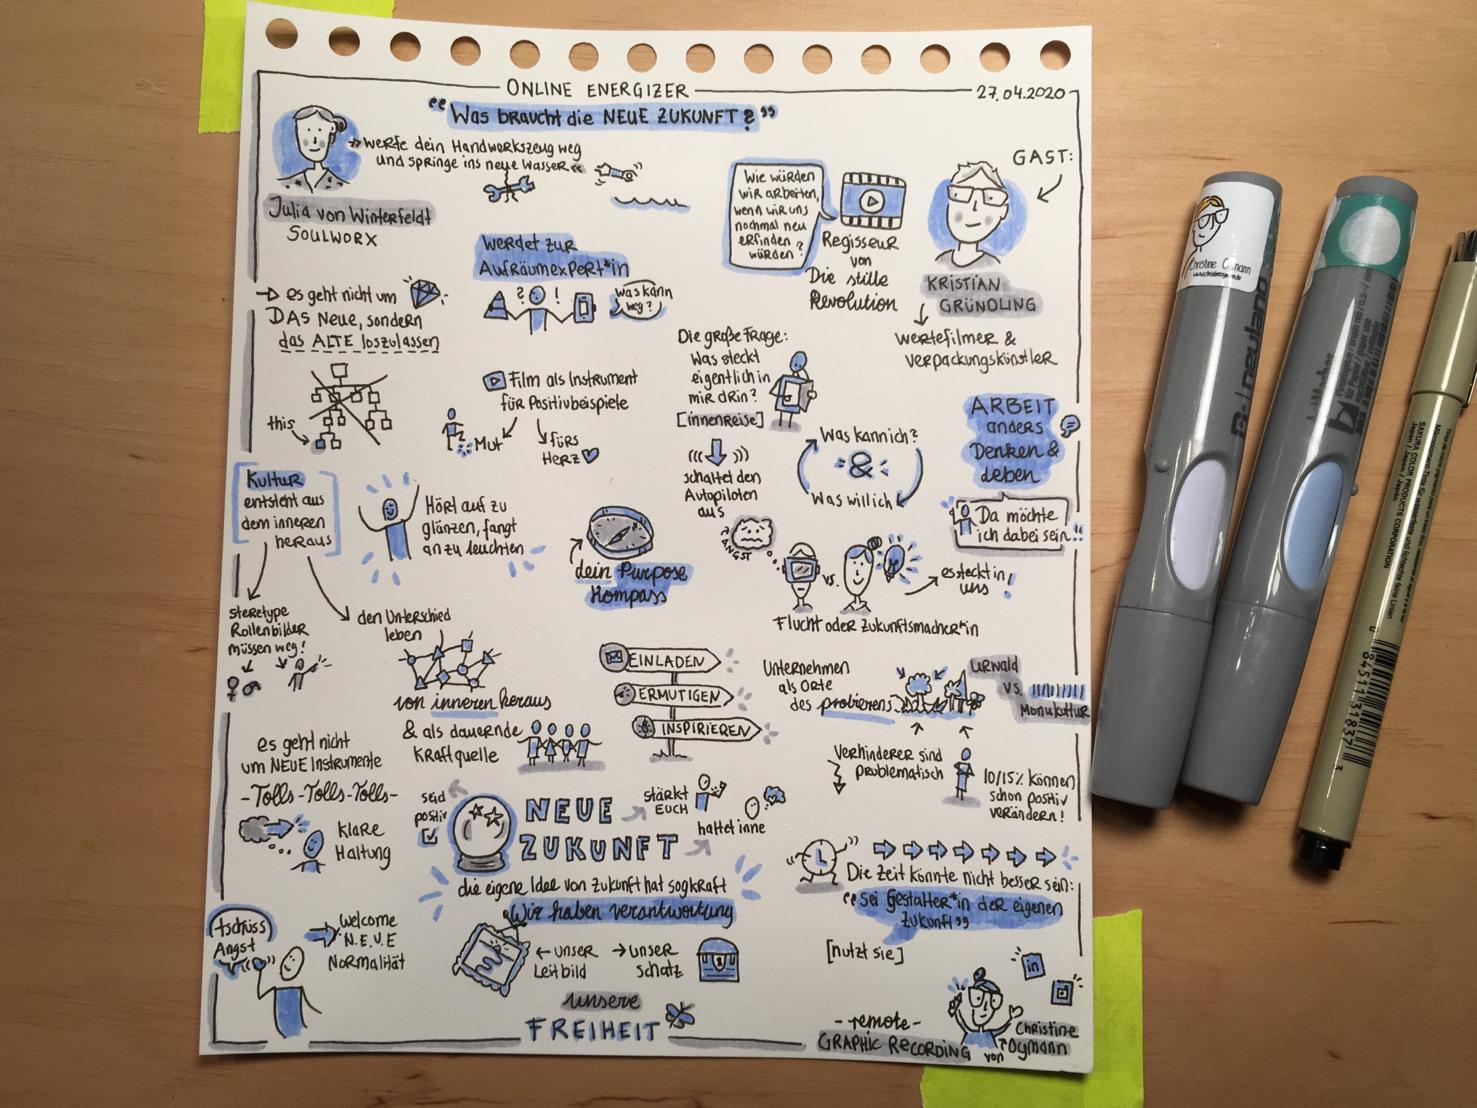 ONLINE ENERGIZER
27.04.2020
"Was braucht die NEUE ZUKUNFT?"
»werfe dein Handwerkszeug weg
und springe ins neue Wasser«
Julia von Winterfeldt
SOULWORX
Wie würden
wir arbeiten,
wenn wir uns
nochmal neu
erfinden
würden?
Regisseur
von
Die stille
Revolution
GAST:
KRISTIAN
GRÜNDLING
wertefilmer &
verpackungskünstler
werdet zur
Aufräumexpert*in
? !
was kann
weg?
es geht nicht um
DAS Neue, sondern
das ALTE loszulassen
this
Film als Instrument
für Positivbeispiele
Mut
fürs
Herz
Die große Frage:
Was steckt
eigentlich in
mir drin?
[innenreise]
schaltet den
Autopiloten
aus
Was kann ich?
&
Was will ich
ARBEIT
anders
Denken &
Leben
Da möchte
ich dabei sein!!
Kultur
entsteht aus
dem inneren
heraus
Hört auf zu
glänzen, fangt
an zu leuchten
dein Purpose
Kompass
ANGST
vs.
es steckt in
uns!
Flucht oder Zukunftsmacher*in
steretype
Rollenbilder
müssen weg!
den Unterschied
leben
von inneren heraus
& als dauernde
Kraftquelle
EINLADEN
ERMUTIGEN
INSPIRIEREN
Unternehmen
als Orte
des probierens
URWald
VS.
Monukultur
Verhinderer sind
problematisch
10/15% können
schon positiv
verändern!
es geht nicht
um NEUE Instrumente
-Tolls-Tolls-Tolls-
Klare
Haltung
seid
positiv
NEUE
ZUKUNFT
stärkt
EUCH
haltet inne
die eigene Idee von Zukunft hat sogkraft
Wir haben verantwortung
← unser
Leitbild
→ unser
schatz
unsere
FREIHEIT
Die Zeit könnte nicht besser sein:
"sei Gestalter*in der eigenen
Zukunft"
[nutzt sie]
tschüss
Angst
welcome
N.E.U.E
Normalität
in
-remote-
GRAPHIC RECORDING
von
Christine
Oymann
Christine Oymann
neuland
SAKURA COLOR PRODUCTS CORPORATION
Japan / Japon